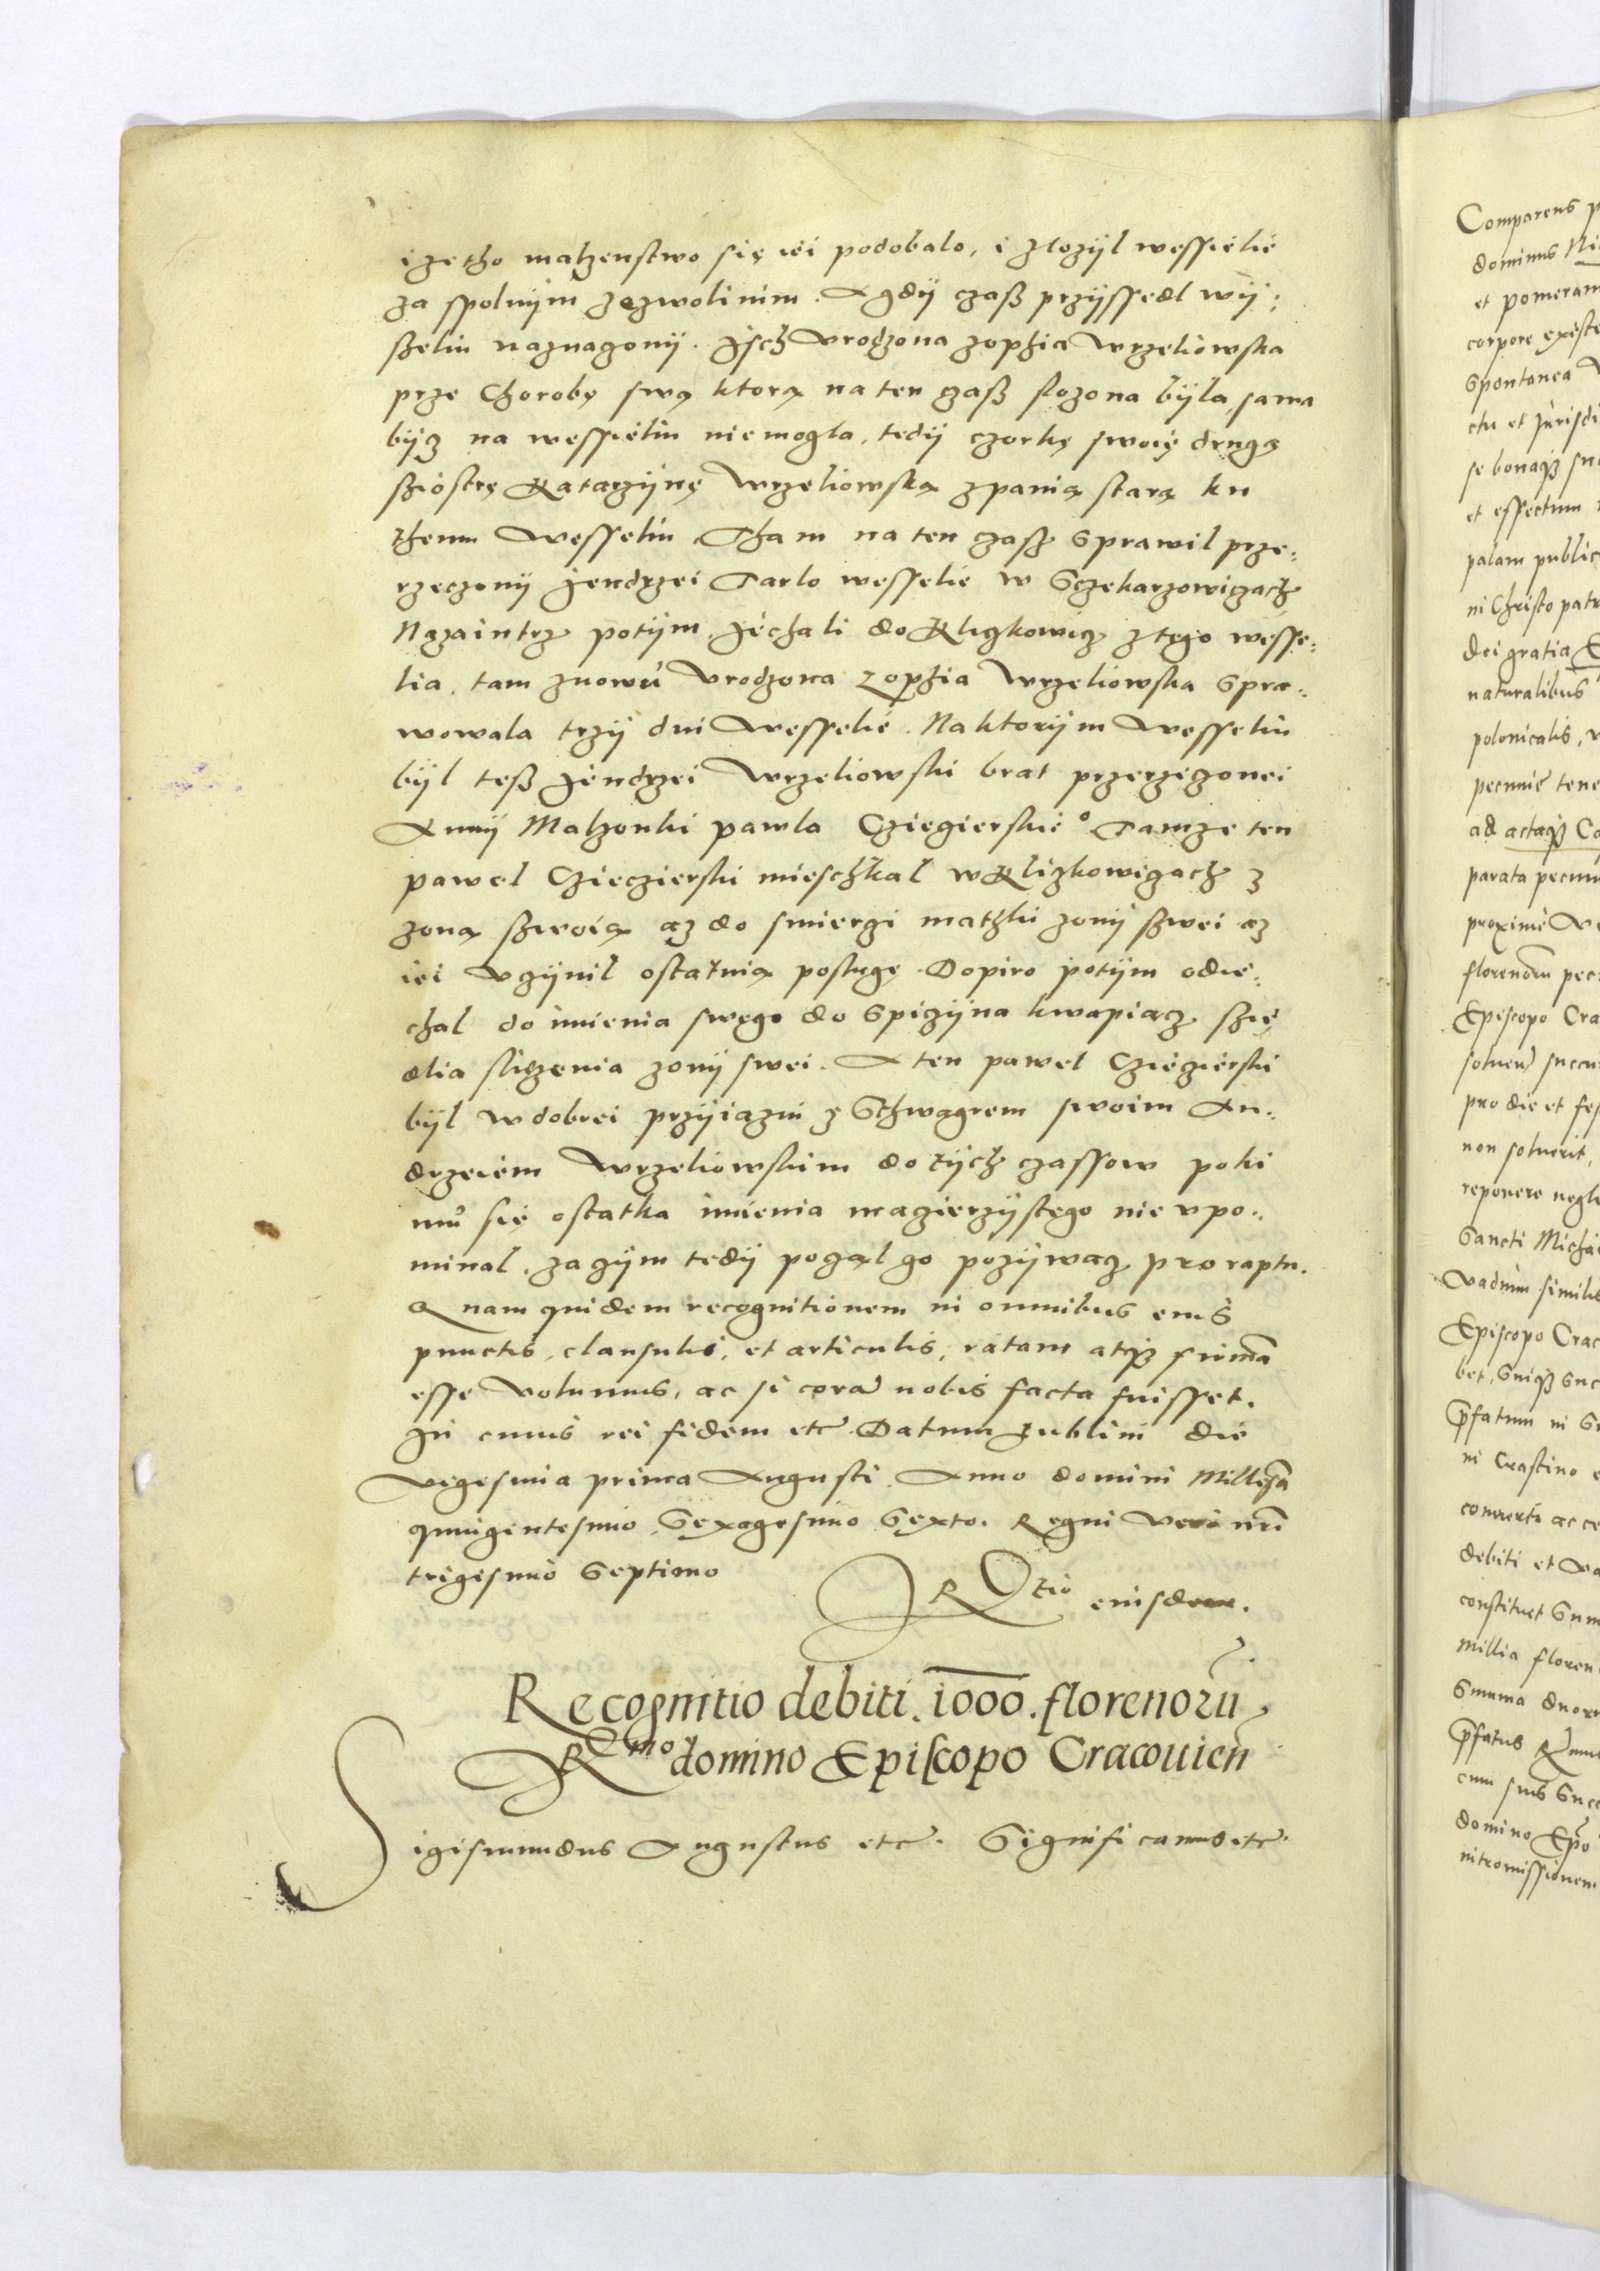 izetho malzenstwo się iei podobalo, i zlozÿl wessielié
za spolnÿm zezwolinim. A gdÿ czasß przÿssedl wÿ:
sseliu naznagonÿ. Jsch Vrodzona zophia Wrzeliowska
prze chorobę swą ktorą na ten czasß slozona bÿla, sama
bÿcz na wessieliu niemogla, tedÿ czorkę swoię drugę
sziostrę Katarzÿnę Wrzeliowską zpanią starą ku
themu Wesseliu. Tham na ten czasz sprawil prze:
rzeczonÿ Jendrzei Tarlo wesselie w Sczekarzowiczach
Nazaiutrz potÿm jechali do Kliczkowicz z tego wesse:
lia, tam znowu Vrodzona Zophia Wrzeliowska spra:
wowala trzÿ dni Wesselié. Na ktorÿm Wesseliu
bÿl tesß Jendrzei Wrzeliowski brat przerzeczonei
Annÿ Malzonki pawla Cziegierskie° Tamze ten
pawel Czieczierski mieschkal w Kliczkowiczach z
zoną szwoią az do smierczi matzki zonÿ szwei az
iei Vczÿnil ostatnią poslugę. Dopiro potÿm odie:
chal do imienia swego do Spiczÿna kwapiacz szię
dlia sliczenia zonÿ swei. A ten pawel Czieczierski
bÿl w dobrei przÿiazni z Schwagrem swoim An:
drzeiem Wrzeliowskim do tÿch czassow poki
mu się ostatka imienia maczierzÿstego nie vpo:
minal. zaczÿm tedÿ poczal go pozÿwacz pro raptu.
Quam quidem recognitionem in omnibus eius
punctis, clausulis, et articulis, ratam atq3 firmā
esse Volumus, ac si corā nobis facta fuisset.
In cuius rei fidem etc. Datum Lublini die
Vigesima prima Augusti. Anno domini Millesō
quingentesimo Sexagesimo Sexto. Regni Vero nri
trigesimo Septimo
Rtio eiusdem.
Recognitio debiti. 1000. florenorū
Rmo domino Episcopo Cracouien
Sigismundus Augustus etc. Significamus etc.
Comparens
dominus
et pomeram
corpore existe
Spontanea
ctu et Jurisdi
se bonaq3 su
et effectum
palam public
in Christo patr
Dei gratia
naturalibus
polonicalis,
pecunie tene
ad actaq3 Ca
parata pecuni
proxime Ve
florenorū pec
Episcopo Cra
solueri succu
pro die et fes
non soluerit,
reponere negl
Sancti Micha
Vadium simile
Episcopo Crac
bet, Suisq3 Suc
pfatum in
in Crastino
debiti et va
constituet Sum
Millia floren
Summa duoru
pfatus
cum suis Succ
domino Epo
intromissionem